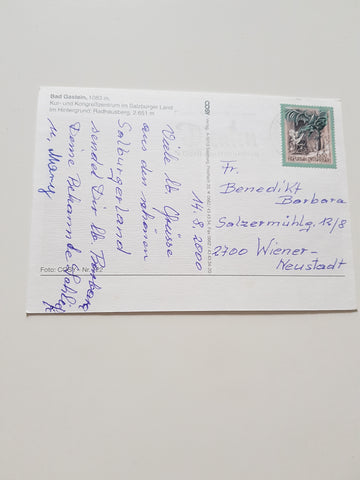 Bad Gastein, 1083 m,
Kur- und Kongreßzentrum im Salzburger Land
Im Hintergrund: Radhausberg, 2 651 m
14.8.2000
Viele lb. Grüsse
aus dem schönen
Salzburgerland
sendet Dir lb. Barbara
Deine Bekannte
u. Mary
Foto: COSY - Nr.
COSY
Fr.
Benedikt
Barbara
Salzermühlg. 12/8
2700 Wiener-
Neustadt